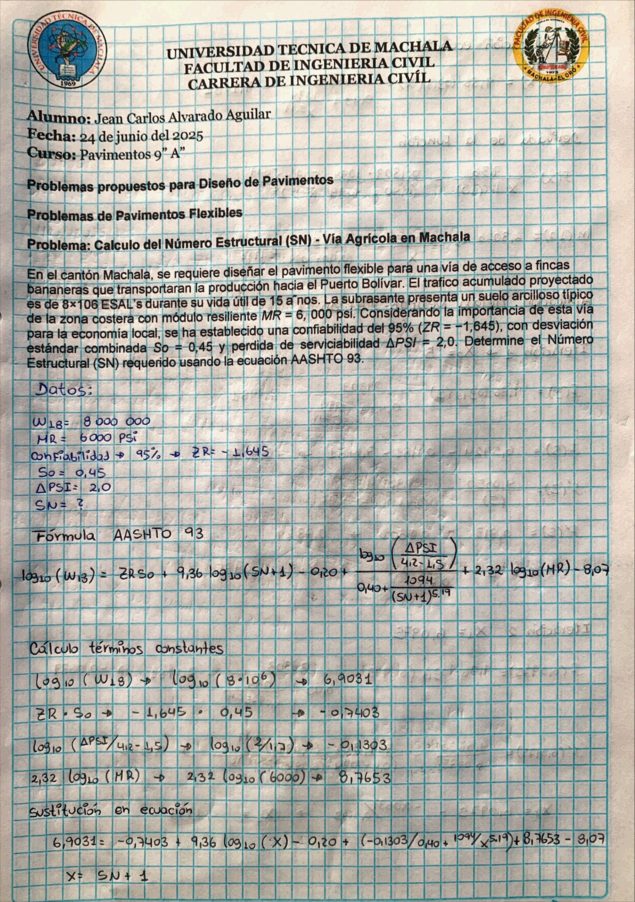 UNIVERSIDAD TECNICA DE MACHALA
FACULTAD DE INGENIERIA CIVIL
CARRERA DE INGENIERIA CIVÍL
UNIVERSIDAD TECNICA DE MACHALA
1969
FACULTAD DE INGENIERIA CIVIL
MACHALA-EL ORO
Alumno: Jean Carlos Alvarado Aguilar
Fecha: 24 de junio del 2025
Curso: Pavimentos 9” A”
Problemas propuestos para Diseño de Pavimentos
Problemas de Pavimentos Flexibles
Problema: Calculo del Número Estructural (SN) - Vía Agrícola en Machala
En el cantón Machala, se requiere diseñar el pavimento flexible para una vía de acceso a fincas
bananeras que transportaran la producción hacia el Puerto Bolívar. El trafico acumulado proyectado
es de 8×106 ESAL's durante su vida útil de 15 a˜nos. La subrasante presenta un suelo arcilloso típico
de la zona costera con módulo resiliente MR = 6, 000 psi. Considerando la importancia de esta vía
para la economía local, se ha establecido una confiabilidad del 95% (ZR = −1,645), con desviación
estándar combinada So = 0,45 y perdida de serviciabilidad ΔPSI = 2,0. Determine el Número
Estructural (SN) requerido usando la ecuación AASHTO 93.
Datos:
W18= 8 000 000
MR = 6000 PSi
Confiabilidad → 95% → ZR= - 1,645
So = 0,45
Δ PSI= 2,0
SN= ?
Fórmula AASHTO 93
log10 (W18) = ZRSo + 9,36 log10 (SN+1) - 0,20 + log10 (ΔPSI / 4,2 - 1,5) / (0,40 + 1094 / (SN+1)^5,19) + 2,32 log10 (MR) - 8,07
Cálculo términos constantes
log10 (W18) → log10 (8·10⁶) → 6,9031
ZR · So → - 1,645 · 0,45 → - 0,7403
log10 (ΔPSI/4,2 - 1,5) → log10 (2/1,7) → - 0,1303
2,32 log10 (MR) → 2,32 log10 (6000) → 8,7653
Sustitución en ecuación
6,9031= -0,7403 + 9,36 log10 (X) - 0,20 + (-0,1303/0,40 + 1094/x^5,19) + 8,7653 - 8,07
X= SN + 1